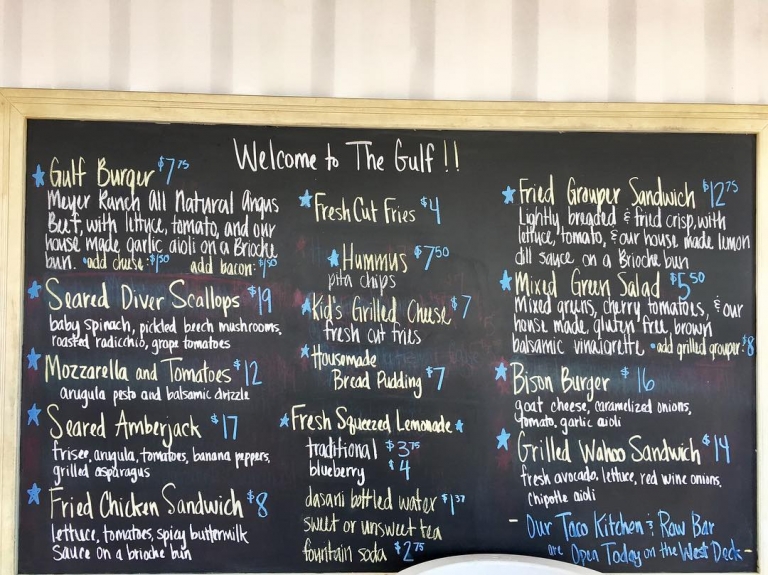 Welcome to The Gulf!!
Gulf Burger $7.75
Meyer Ranch All Natural Angus
Beef, with lettuce, tomato, and our
house made garlic aioli on a Brioche
bun. •add cheese: $1.50 add bacon: $1.50
Seared Diver Scallops $19
baby spinach, pickled beech mushrooms,
roasted radicchio, grape tomatoes
Mozzarella and Tomatoes $12
arugula pesto and balsamic drizzle
Seared Amberjack $17
frisee, arugula, tomatoes, banana peppers,
grilled asparagus
Fried Chicken Sandwich $8
lettuce, tomatoes, spicy buttermilk
sauce on a brioche bun
Fresh Cut Fries $4
Hummus $7.50
pita chips
Kid's Grilled Cheese $7
fresh cut fries
Housemade
Bread Pudding $7
Fresh Squeezed Lemonade
traditional $3.75
blueberry $4
dasani bottled water $1.37
sweet or unsweet tea
fountain soda $2.75
Fried Grouper Sandwich $12.75
Lightly breaded & fried crisp, with
lettuce, tomato, & our house made lemon
dill sauce on a Brioche bun
Mixed Green Salad $5.50
Mixed greens, cherry tomatoes, & our
house made, gluten free, brown
balsamic vinaigrette •add grilled grouper: $8
Bison Burger $16
goat cheese, caramelized onions,
tomato, garlic aioli
Grilled Wahoo Sandwich $14
fresh avocado, lettuce, red wine onions,
chipotle aioli
- Our Taco Kitchen & Raw Bar
are Open Today on the West Deck -